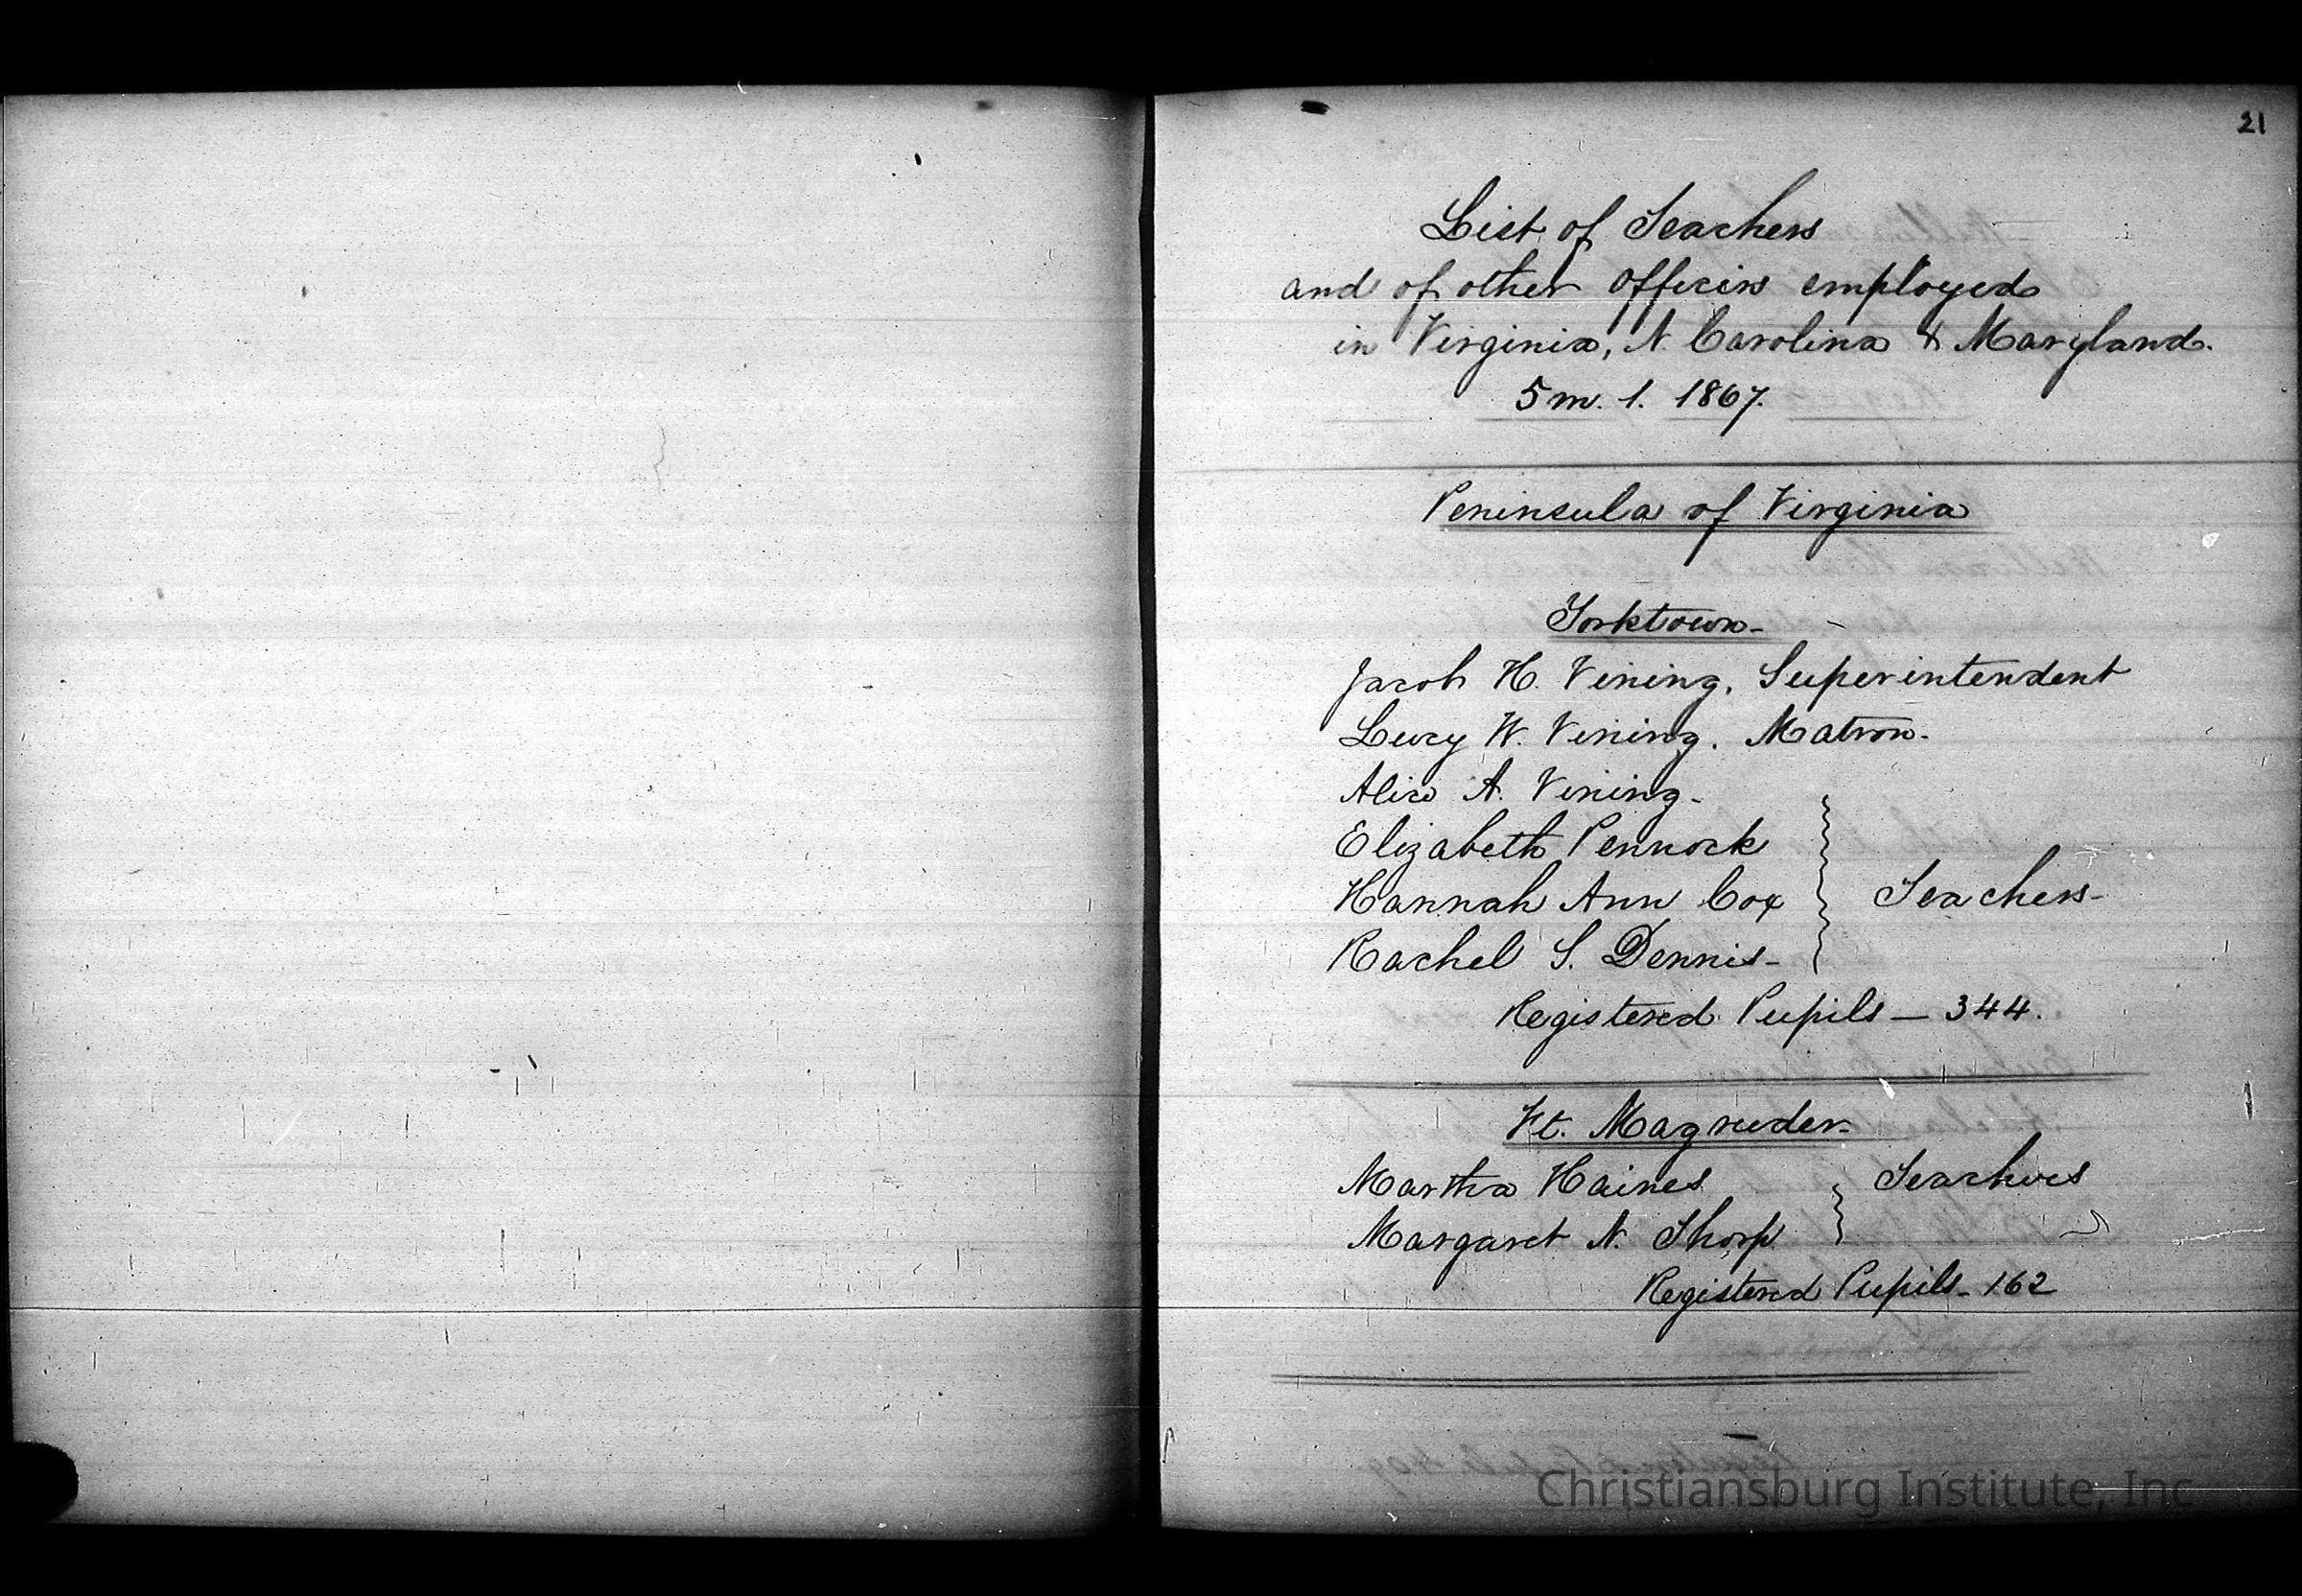 21
List of Teachers
and of other officers employed
in Virginia, N. Carolina & Maryland.
5 m. 1. 1867.
Peninsula of Virginia
Yorktown-
Jacob H. Vining, Superintendent
Lucy W. Vining. Matron.
Alice A. Vining-
Elizabeth Pennock
Hannah Ann Cox
Teachers-
Rachel S. Dennis-
Registered Pupils — 344.
Ft. Magruder-
Martha Haines
Teachers
Margaret N. Thorp
Registered Pupils - 162
Christiansburg Institute, Inc